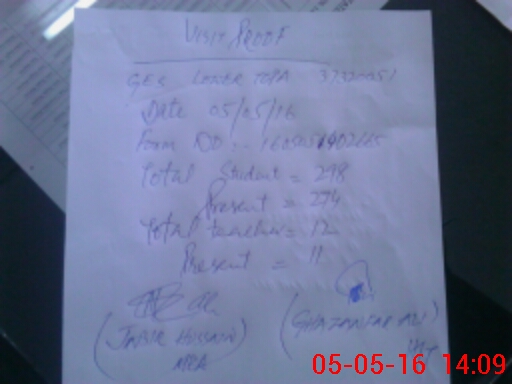 VISIT PROOF
GES LOWER TOPA 37320051
Date 05/05/16
Form NO:-
Total Student = 298
Present = 274
Total teacher = 12
Present = 11
(JABIR HUSSAIN)
(GHAZANFAR ALI)
MEA
05-05-16 14:09